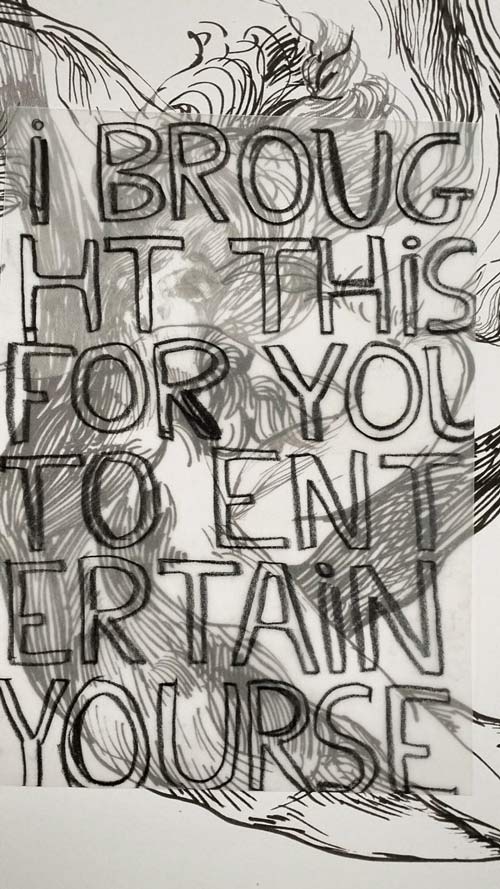 i BROUG
HT THiS
FOR YOU
TO ENT
ERTAiN
YOURSE